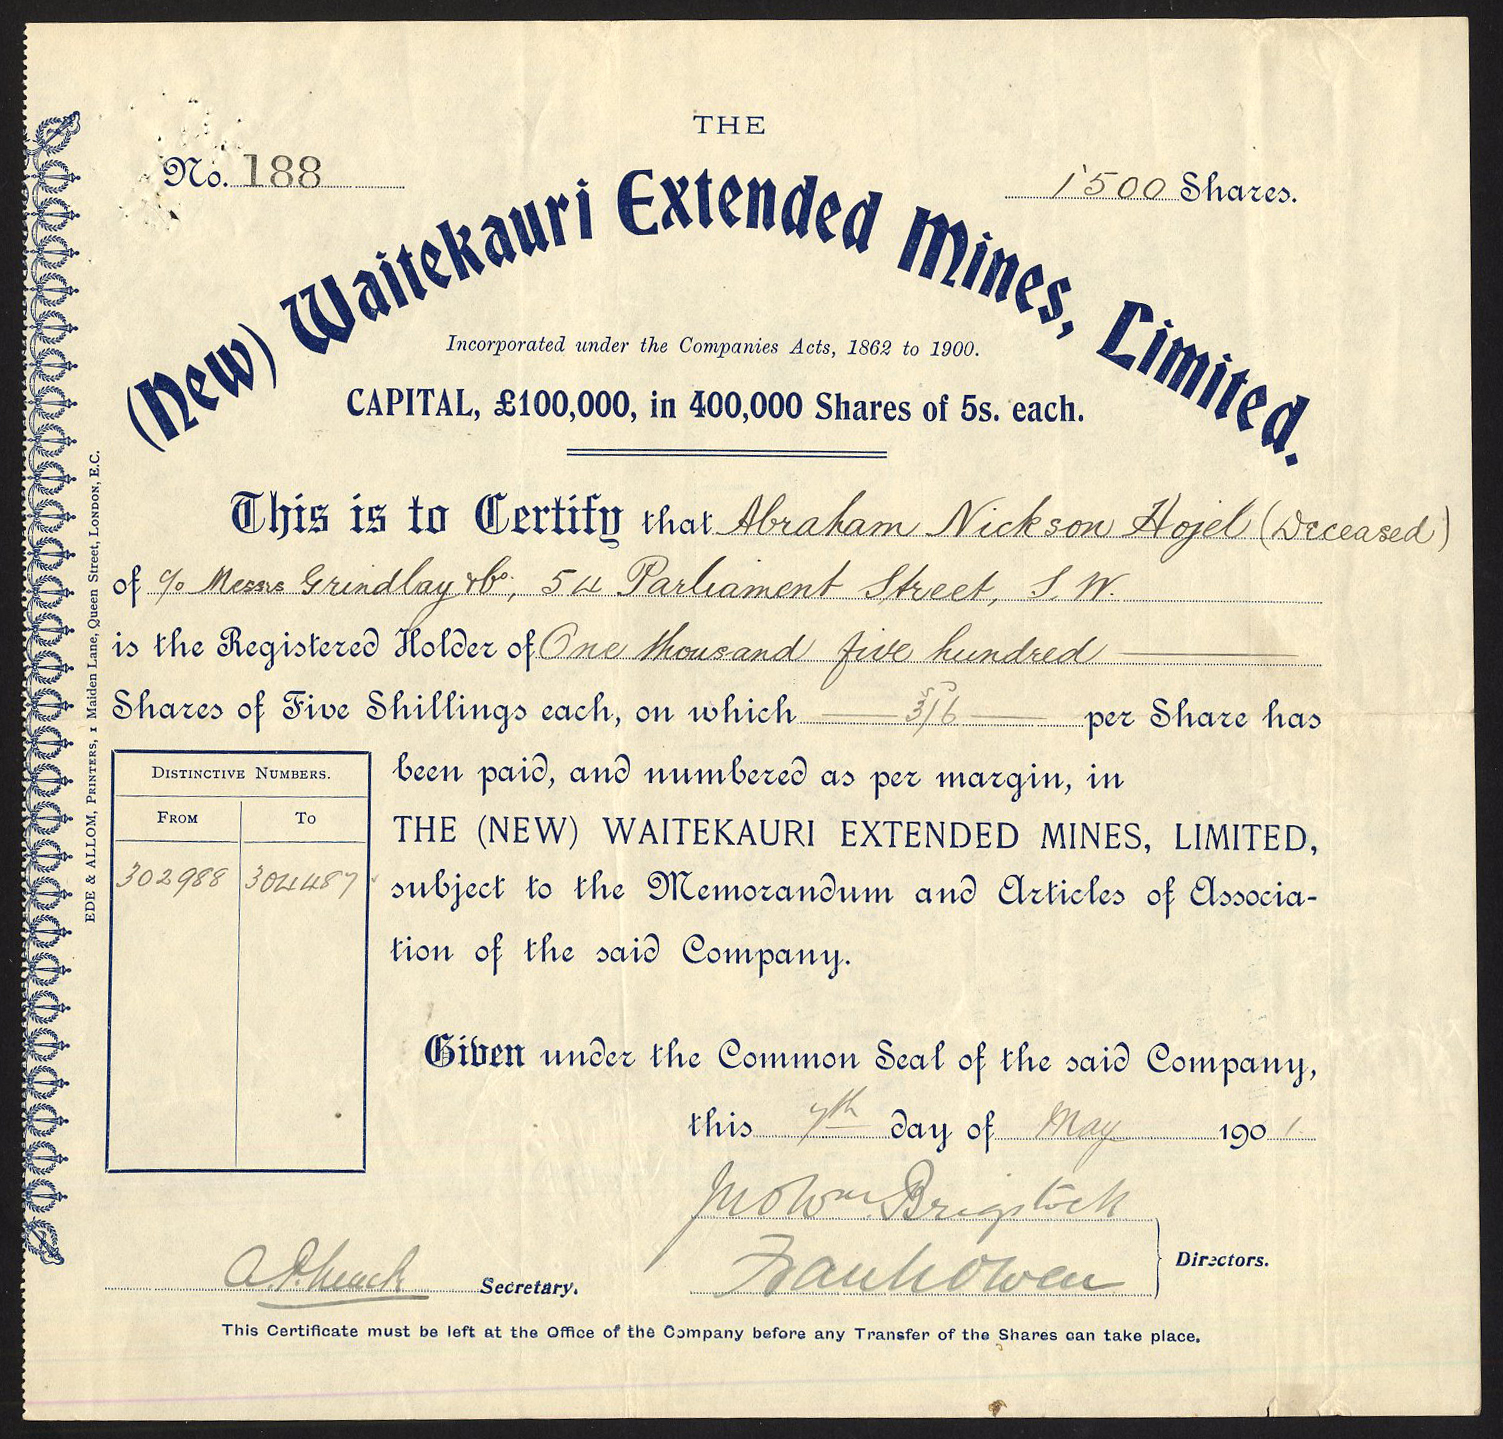 THE
No. 188
1500 Shares.
(New) Waitekauri Extended Mines, Limited.
Incorporated under the Companies Acts, 1862 to 1900.
CAPITAL, £100,000, in 400,000 Shares of 5s. each.
This is to Certify that Abraham Nickson Hojel (Deceased)
of c/o Messrs Grindlay & Co., 54 Parliament Street, S.W.
is the Registered Holder of One thousand five hundred
Shares of Five Shillings each, on which 3/6 per Share has
been paid, and numbered as per margin, in
THE (NEW) WAITEKAURI EXTENDED MINES, LIMITED,
subject to the Memorandum and Articles of Associa-
tion of the said Company.
DISTINCTIVE NUMBERS.
FROM TO
302988 304487
Given under the Common Seal of the said Company,
this 7th day of May 1901.
Jno Wm. Brigstock
Frank Owen
Directors.
Secretary.
This Certificate must be left at the Office of the Company before any Transfer of the Shares can take place.
EDE & ALLOM, PRINTERS, 1 Maiden Lane, Queen Street, LONDON, E.C.